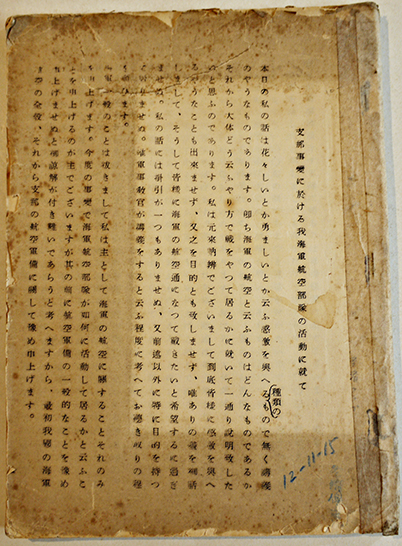 支那事變に於ける我海軍航空部隊の活動に就て
本日の私の話は花々しいとか勇ましいとか云ふ感激を與へるもので無く講義
種類の
のやうなものであります。即ち海軍の航空と云ふものはどんなものであるか
それから大体どう云ふやり方で戰をやつて居るかに就いて一通り説明致した
いと思ふのであります。私は元來訥辨でございまして到底皆樣に感激を與へ
るやうなことも出來ませず、又之を目的とも致しませず、唯ありの儘を御話
しまして、そうして皆樣に海軍の航空通になつて戴きたいと希望するに過ぎ
ませぬ。私の話には掛引が一つもありませぬ、又前述以外に特に目的を持つ
て居りませぬ。唯軍事教官が講義をすると云ふ程度に考へてお聽き取りの程
を願ひます。
海軍一般のことは拔きまして私は主として海軍の航空に關することそれのみ
を申上げます。今度の事變で海軍航空部隊が如何に活動して居るかと云ふこ
とを申上げるのが主でございますが其の前に航空軍備の一般的なことを豫め
申上げませぬと御諒解が付き難いであらうと考へますから、最初我邦の海軍
航空の全般、それから支那の航空軍備に關して豫め申上げます。
12-11-15